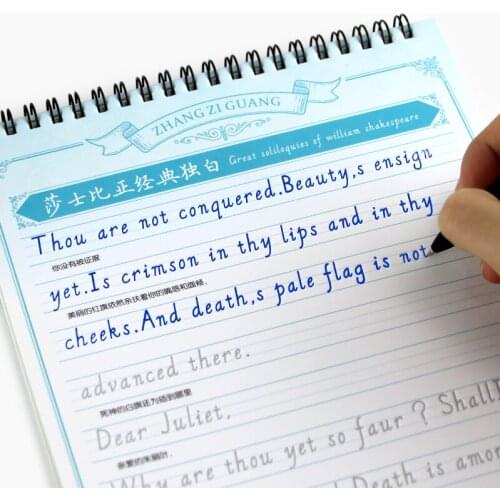 ZHANG ZI GUANG
莎士比亚经典独白 Great soliloquies of william shakespeare
Thou are not conquered.Beauty,s ensign
你没有被征服
yet.Is crimson in thy lips and in thy
美丽的红旗依然亲扶着你的嘴唇和面颊,
cheeks.And death,s pale flag is not
advanced there.
死神的白旗还为插到哪里
Dear Juliet,
亲爱的朱丽叶,
Why are thou yet so faur ? Shall
Death is amor